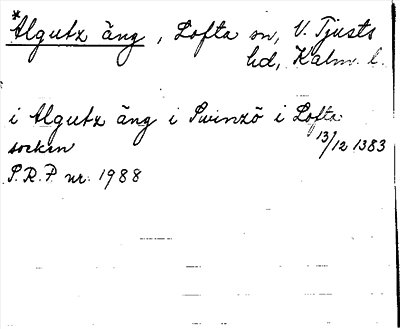 *Algutz äng, Lofta sn, V. Tjusts
hd, Kalm. l.
i Algutz äng i Swinzö i Lofta
socken 13/12 1383
S.R.P. nr. 1988